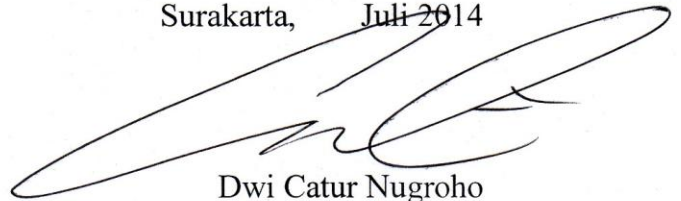 Surakarta, Juli 2014
Dwi Catur Nugroho